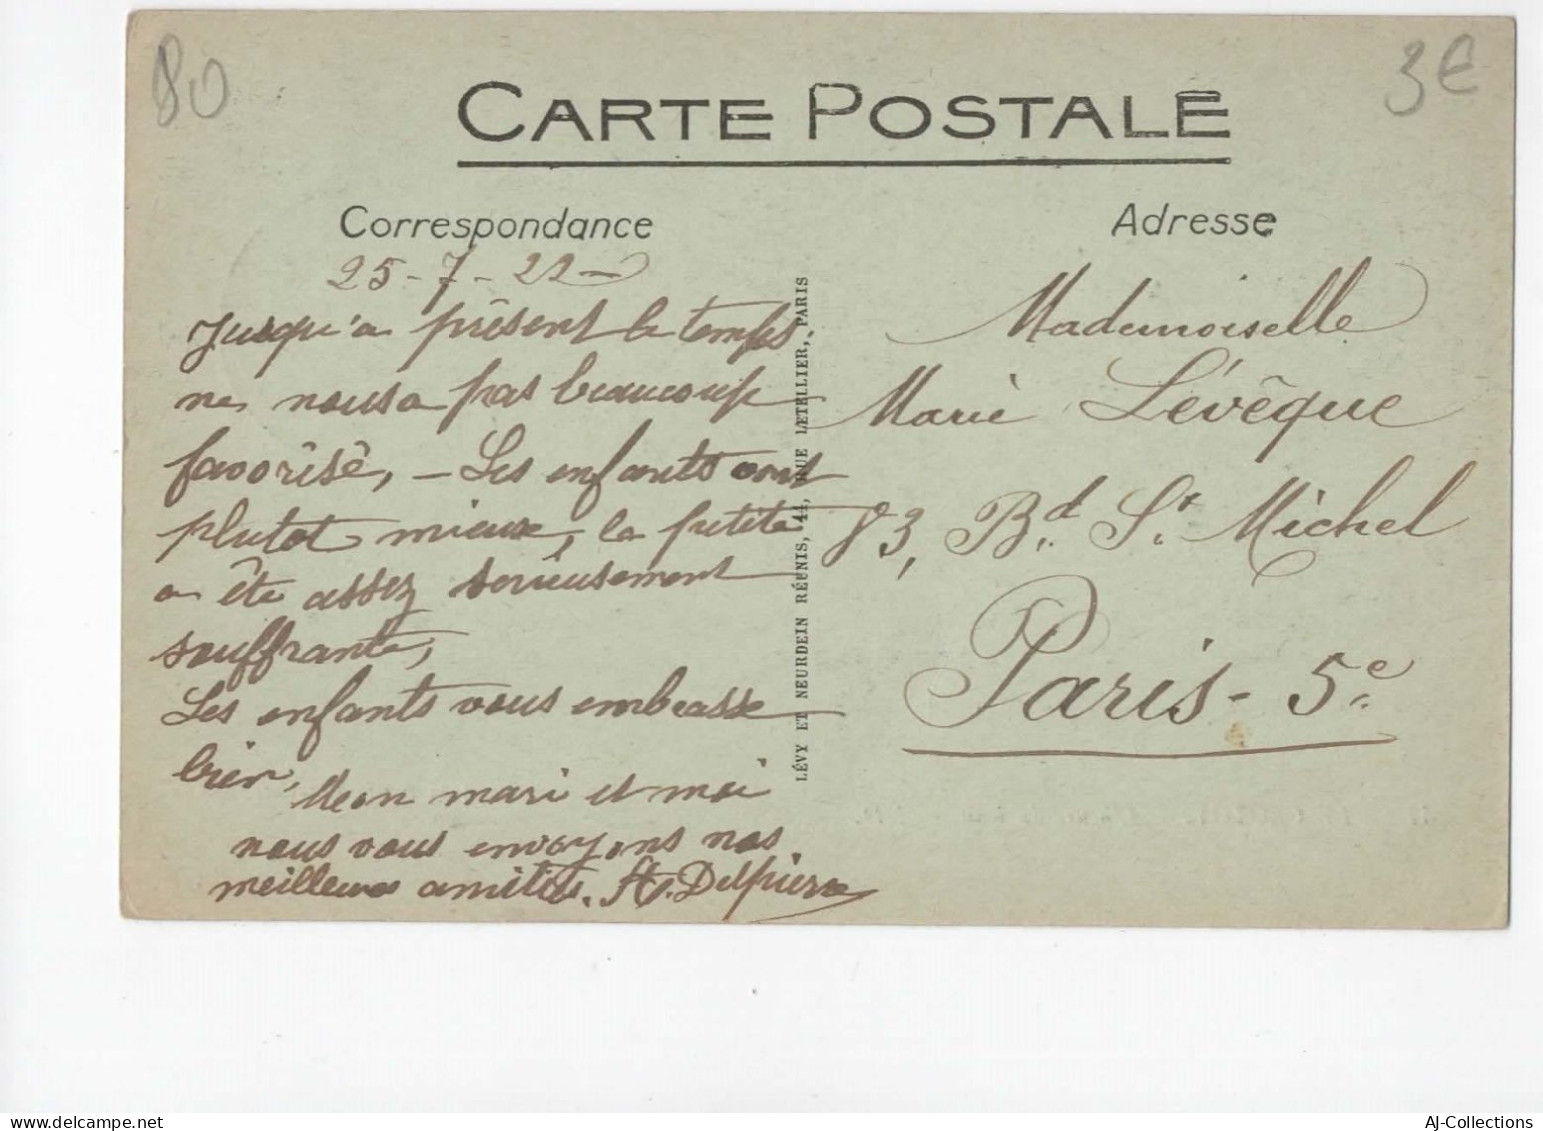 80
3€
CARTE POSTALE
Correspondance
25-7-22
Jusqu'a présent le temps
ne nous a pas beaucoup
favorisé, - Les enfants vont
plutot mieux, la petite
a été assez serieusement
souffrante,
Les enfants vous embrasse
bien,
Mon mari et moi
nous vous envoyons nos
meilleures amitiés. Delpierre
LÉVY ET NEURDEIN RÉUNIS, 44, RUE LETELLIER, PARIS
Adresse
Mademoiselle
Marie Lévêque
83, Bd. St. Michel
Paris - 5e
AJ-Collections